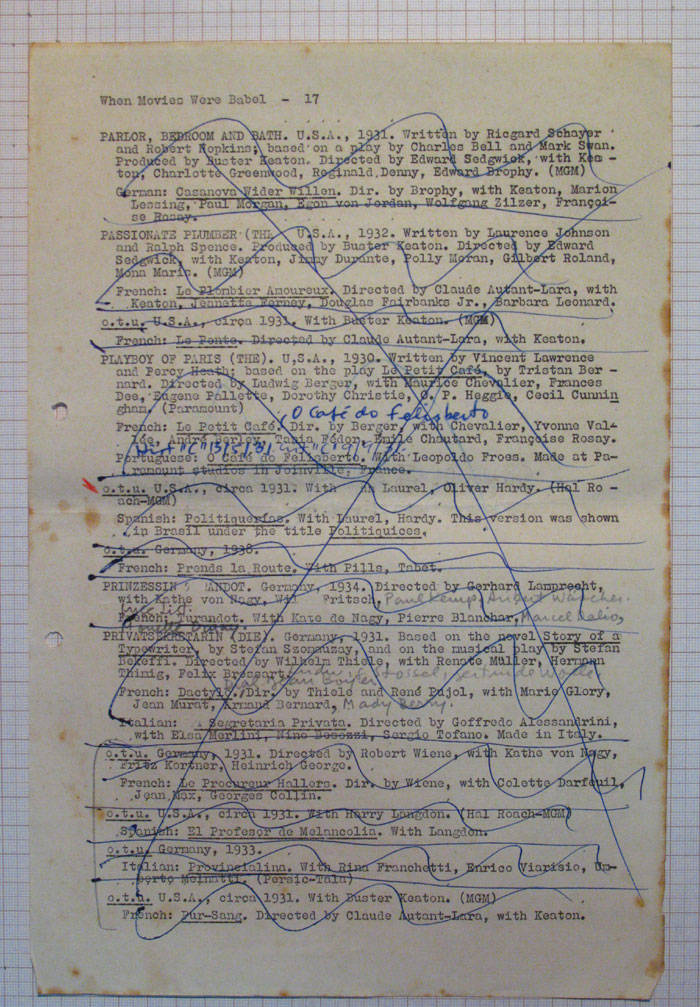 When Movies Were Babel - 17
PARLOR, BEDROOM AND BATH. U.S.A., 1931. Written by Ricgard Schayer
and Robert Hopkins; based on a play by Charles Bell and Mark Swan.
Produced by Buster Keaton. Directed by Edward Sedgwick, with Kea -
ton, Charlotte Greenwood, Reginald Denny, Edward Brophy. (MGM)
German: Casanova Wider Willen. Dir. by Brophy, with Keaton, Marion
Lessing, Paul Morgan, Egon von Jordan, Wolfgang Zilzer, Françoi-
se Rosay.
PASSIONATE PLUMBER (THE U.S.A., 1932. Written by Laurence Johnson
and Ralph Spence. Produced by Buster Keaton. Directed by Edward
Sedgwick, with Keaton, Jimmy Durante, Polly Moran, Gilbert Roland,
Mona Maris. (MGM)
French: Le Plombier Amoureux. Directed by Claude Autant-Lara, with
Keaton, Jeanette Ferney, Douglas Fairbanks Jr., Barbara Leonard.
o.t.u. U.S.A., circa 1931. With Buster Keaton. (MGM)
French: Le Pente. Directed by Claude Autant-Lara, with Keaton.
PLAYBOY OF PARIS (THE). U.S.A., 1930. Written by Vincent Lawrence
and Percy Heath; based on the play Le Petit Café, by Tristan Ber -
nard. Directed by Ludwig Berger, with Maurice Chevalier, Frances
Dee, Eugene Pallette, Dorothy Christie, O. P. Heggie, Cecil Cunnin
gham. (Paramount)
O Café do Felisberto
French: Le Petit Café. Dir. by Berger, with Chevalier, Yvonne Val-
lée, André Berley, Tania Fédor, Emile Chautard, Françoise Rosay.
Portuguese: O Café do Felisberto. With Leopoldo Froes. Made at Pa-
ramount studios in Joinville, France.
o.t.u. U.S.A., circa 1931. With Laurel, Oliver Hardy. (Hal Ro -
ach-MGM)
Spanish: Politiquerías. With Laurel, Hardy. This version was shown
in Brasil under the title Politiquices.
o.t.u. Germany, 1938.
French: Prends la Route. With Pills, Tabet.
PRINZESSIN ANDOT. Germany, 1934. Directed by Gerhard Lamprecht,
with Kathe von Nagy, Wil Fritsch, Paul Kemp,
French: Turandot. With Kate de Nagy, Pierre Blanchar, Marcel Dalio,
PRIVATSEKRETARIN (DIE). Germany, 1931. Based on the novel Story of a
Typewriter, by Stefan Szomanzay, and on the musical play by Stefan
Bekeffi. Directed by Wilhelm Thiele, with Renate Müller, Hermann
Thinig, Felix Bressart,
French: Dactylo. Dir. by Thiele and René Pujol, with Marie Glory,
Jean Murat, Armand Bernard, Mady Berry.
Italian: Segretaria Privata. Directed by Goffredo Alessandrini,
with Elsa Merlini, Nino Besozzi, Sergio Tofano. Made in Italy.
o.t.u. Germany, 1931. Directed by Robert Wiene, with Kathe von Nagy,
Fritz Kortner, Heinrich George.
French: Le Procureur Hallers. Dir. by Wiene, with Colette Darfeuil,
Jean Max, Georges Collin.
o.t.u. U.S.A., circa 1931. With Harry Langdon. (Hal Roach-MGM)
Spanish: El Profesor de Melancolia. With Langdon.
o.t.u. Germany, 1933.
Italian: Provincialina. With Rina Franchetti, Enrico Viarisio, Um-
berto Melnatti. (Persic-Tala)
o.t.u. U.S.A., circa 1931. With Buster Keaton. (MGM)
French: Pur-Sang. Directed by Claude Autant-Lara, with Keaton.